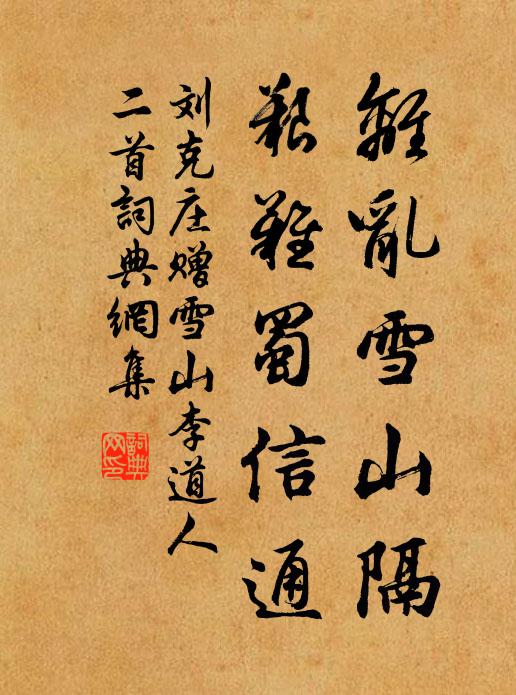 離亂雪山隔
艱難蜀信通
刘克庄赠雪山李道人
二首詞典網集
詞典
网印